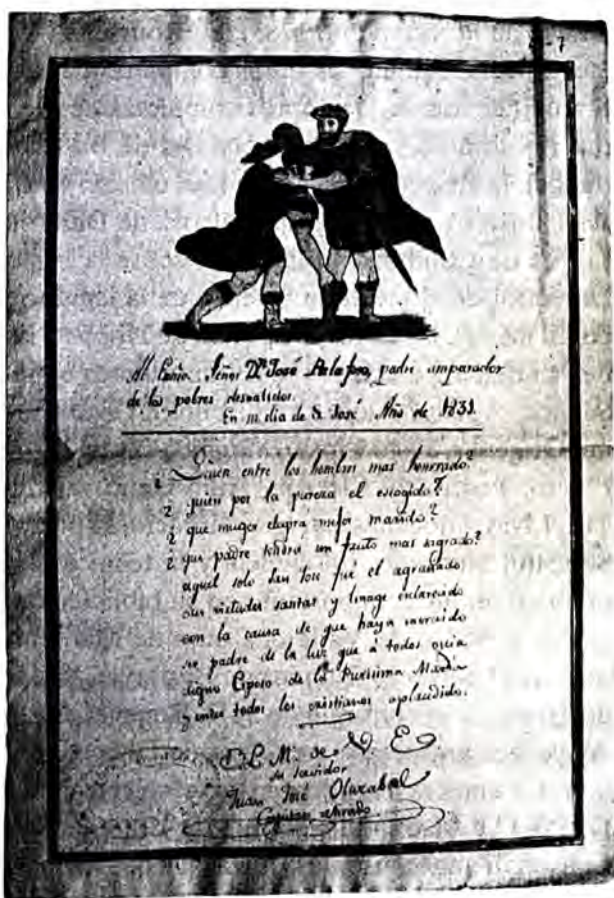 -7
Al Exmo. Señor Dn. José Palafox, padre amparador
de los pobres desvalidos.
En su dia de S. José Año de 1831.
¿Quien entre los hombres mas honrrado?
¿quien por la pureza el escogido?
¿que muger elegira mejor marido?
¿que padre tendrá un fruto mas sagrado?
aquel solo San José fué el agraciado
sus virtudes santas y linage esclarecido
son la causa de que haya merecido
ser padre de la luz que á todos guia
digno Esposo de la Purissima Maria
y entre todos los cristianos aplaudido.
B. L. M. de V. E.
su servidor
Juan José Olazabal
Capitan retirado.